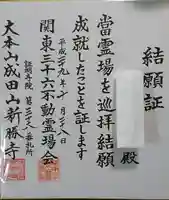 結願証
殿
當霊場を巡拝結願
成就したことを証します
平成二十九年
関東三十六不動霊場会
大本山成田山新勝寺